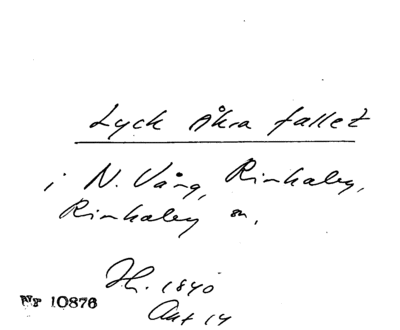 Lyck Åkra fallet
i N. Vång, Rinkaby,
Rinkaby sn.
Ht. 1840
Akt 14
Nr 10876